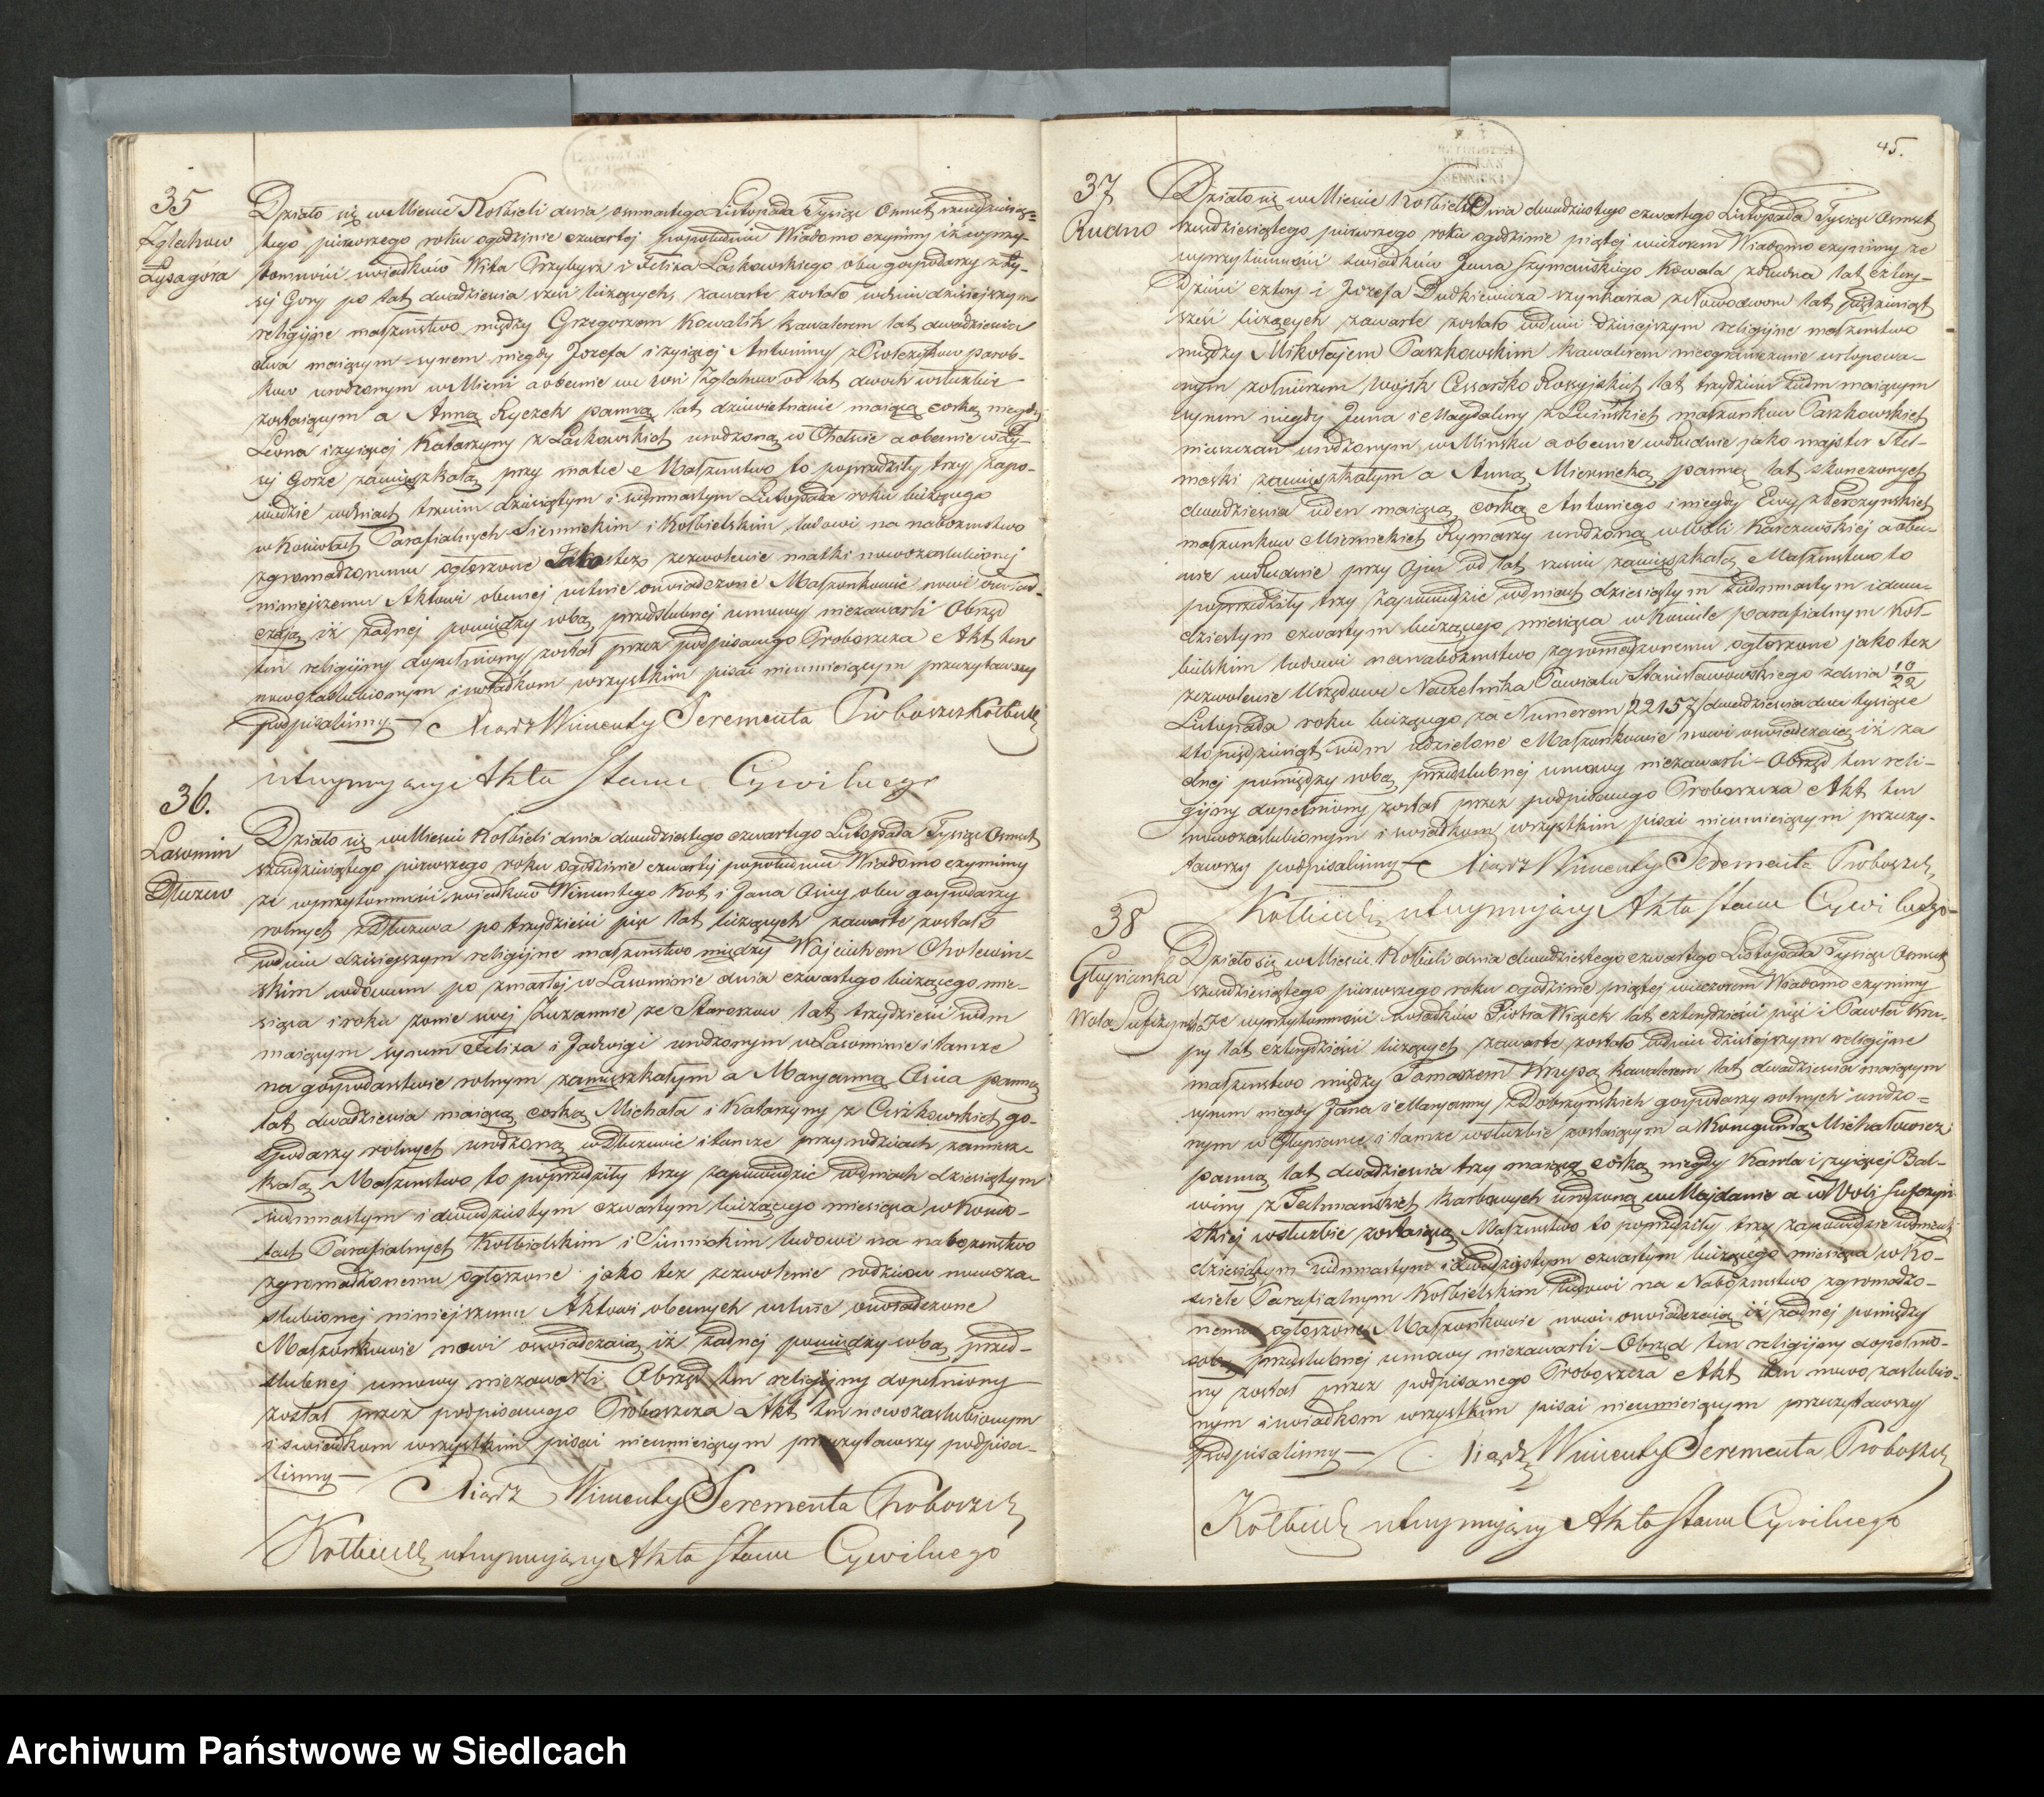 35
Zglechow
Łysagóra
Działo się w Mieście Kołbieli dnia osmnastego Listopada Tysiąc Osmset sześćdziesią=
tego pierwszego roku ogodzinie czwartej popołudniu Wiadomo czynimy iż wprzy-
tomności swiadków Wita Przybysz i Felixa Laskowskiego obu gospodarzy z Ły-
sej Gory po lat dwadzieścia sześć liczących, zawarte zostało wdniu dzisiejszym
religijne małżeństwo między Grzegorzem Kowalik kawalerem lat dwadzieścia
dwa maiącym synem niegdy Jozefa i żyiącej Antoniny z parob-
kow urodzonym w Mieni a obecnie we wsi Zglechow od lat dwoch w służbie
zostaiącym a Anną Ryczek panną lat dziewietnaście maiącą corką niegdy
Leona i żyiącej Katarzyny z Laskowskich urodzoną w Chełście a obecnie w Ły-
sej Gorze zamięszkałą przy matce Małżeństwo to poprzedziły trzy zapo-
wiedzie wdniach trzecim dziesiątym i siedmnastym Listopada roku bieżącego
w Kosciołach Parafialnych Siennickim i Kołbielskim ludowi na nabożenstwo
zgromadzonemu ogłoszone Jakoteż zezwolenie matki nowozaslubionej
niniejszemu Aktowi obecnej ustnie oswiadczone Małżonkowie nowi oswiad-
czają iż żadnej pomiędzy sobą przedslubnej umowy niezawarli Obrząd
ten religijny dopełniony został przez podpisanego Proboszcza Akt ten
nowozaslubionym i swiadkom wszystkim pisać nieumieiącym przeczytawszy
podpisaliśmy — Xiądz Wincenty Seremeńta Proboszcz Kołbielski
utrzymujący Akta Stanu Cywilnego
36.
Lasomin
Dłużew
Działo się w Mieście Kołbieli dnia dwudziestego czwartego Listopada Tysiąc Osmset
sześćdziesiątego pierwszego roku ogodzinie czwartej popołudniu Wiadomo czynimy
że wprzytomności swiadków Wincentego Kot i Jana Osicy obu gospodarzy
rolnych z Dłużewa po trzydzieści pięć lat liczących zawarte zostało
wdniu dzisiejszym religijne małżeństwo między Wojciechem Cholewin-
skim wdowcem po zmarłej w Lasominie dnia czwartego bieżącego mie-
siąca i roku żonie swej Zuzannie ze Staroszow lat trzydzieści siedm
maiącym synem Felixa i Jadwigi urodzonym w Lasominie i tamże
na gospodarstwie rolnym zamięszkałym a Maryanną Osica panną
lat dwadzieścia maiącą corką Michała i Katarzyny z Ciszkowskich go-
spodarzy rolnych urodzoną w Dłużewie i tamże przy rodzicach zamiesz-
kałą Małżeństwo to poprzedziły trzy zapowiedzie wdniach dziesiątym
siedmnastym i dwudziestym czwartym bieżącego miesiąca w Kosci-
łach Parafialnych Kołbielskim i Siennickim ludowi na nabożenstwo
zgromadzonemu ogłoszone jako też zezwolenie rodzicow nowoza-
slubionej niniejszemu Aktowi obecnych ustnie oswiadczone
Małżonkowie nowi oswiadczaią iż żadnej pomiędzy sobą przed-
slubnej umowy niezawarli Obrząd ten religijny dopełniony
został przez podpisanego Proboszcza Akt ten nowozaslubionym
i swiadkom wszystkim pisać nieumieiącym przeczytawszy podpisa-
lismy — Xiądz Wincenty Seremeńta Proboszcz
Kołbielski utrzymujący Akta Stanu Cywilnego
45.
37
Rudno
Działo się w Mieście Kołbieli Dnia dwudziestego czwartego Listopada Tysiąc Osmset
sześćdziesiątego pierwszego roku ogodzinie piątej wieczorem Wiadomo czynimy że
wprzytomności swiadków Jana Szymańskiego Kowala z Rudna lat czter-
dzieści cztery i Jozefa Dudkiewicza szynkarza z Nowodworu lat pięćdziesiąt
sześć liczących zawarte zostało wdniu dzisiejszym religijne małżenstwo
między Mikołajem Paszkowskim kawalerem nieograniczenie urlopowa-
nym żołnierzem Wojsk Cesarsko Rossyjskich lat trzydzieści siedm maiącym
synem niegdy Jana i Magdaleny z Luińskich małżonkow Paszkowskich
mieszczan urodzonym w Minsku a obecnie w Rudnie jako majster Stel-
maski zamięszkałym a Anną Miernicką panną lat skończonych
dwadzieścia jeden maiącą corką Antoniego i niegdy Ewy z
małżonkow Miernickich Rymarzy urodzoną w Woli Karczewskiej a obec-
nie w Rudnie przy Ojcu od lat sześciu zamięszkałą Małżenstwo to
poprzedziły trzy zapowiedzie wdniach dziesiątym siedmnastym i dwu-
dziestym czwartym bieżącego miesiąca w Kosciele parafialnym Koł-
bielskim ludowi na nabożenstwo zgromadzonemu ogłoszone jako też
zezwolenie Urzędowe Naczelnika Powiatu Stanisławowskiego z dnia 10/22
Listopada roku bieżącego za Numerem /22157/ dwadzieścia dwa tysiące
sto pięćdziesiąt siedm udzielone Małżonkowie nowi oswiadczaią iż ża
dnej pomiędzy sobą przedslubnej umowy niezawarli – Obrząd ten reli-
gijny dopełniony został przez podpisanego Proboszcza Akt ten
nowozaslubionym i swiadkom wszystkim pisać nieumieiącym przeczy-
tawszy podpisalismy — Xiądz Wincenty Seremeńta Proboszcz
Kołbielski utrzymujący Akta Stanu Cywilnego –
38
Głupianka
Wola Sufczynska
Działo się w Mieście Kołbieli dnia dwudziestego czwartego Listopada Tysiąc Osmset
sześćdziesiątego pierwszego roku ogodzinie piątej wieczorem Wiadomo czynimy
że wprzytomności swiadków Piotra Wiącek lat czterdzieści pięć i Pawła Kru-
py lat czterdzieści liczących, zawarte zostało wdniu dzisiejszym religijne
małżenstwo między Tomaszem Krupą kawalerem lat dwadzieścia maiącym
synem niegdy Jana i Maryanny z Dobrzynskich gospodarzy rolnych urodzo=
nym w Głupiance i tamże w służbie zostaiącym a Konegundą Michałowicz
panną lat dwadzieścia trzy maiącą corką niegdy Karola i żyiącej Bal-
winy z Techmańskich karbowych urodzoną w Majdanie a w Woli Sufczyn
skiej w służbie zostaiącą Małżenstwo to poprzedziły trzy zapowiedzie wdniach
dziesiątym siedmnastym i dwudziestym czwartym bieżącego miesiąca w Ko-
ściele Parafialnym Kołbielskim ludowi na Nabożenstwo zgromadzo-
nemu ogłoszone Małżonkowie nowi oswiadczaią iż żadnej pomiędzy
sobą przedslubnej umowy niezawarli – Obrząd ten religijny dopełnio-
ny został przez podpisanego Proboszcza Akt ten nowo zaslubio-
nym i swiadkom wszystkim pisać nieumieiącym przeczytawszy
podpisalismy — Xiądz Wincenty Seremeńta Proboszcz
Kołbielski utrzymujący Akta Stanu Cywilnego
Archiwum Państwowe w Siedlcach